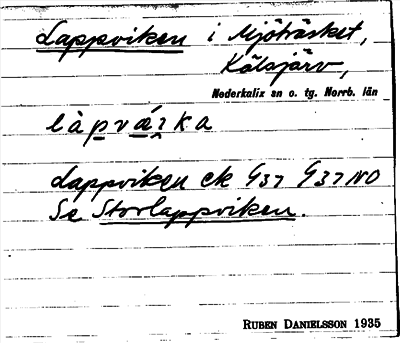 Lappviken i Mjöträsket,
Kälsjärv,
Nederkalix sn o. tg. Norrb. län
làpváɪka
Lappviken ek G37 G37NO
Se Storlappviken.
RUBEN DANIELSSON 1935